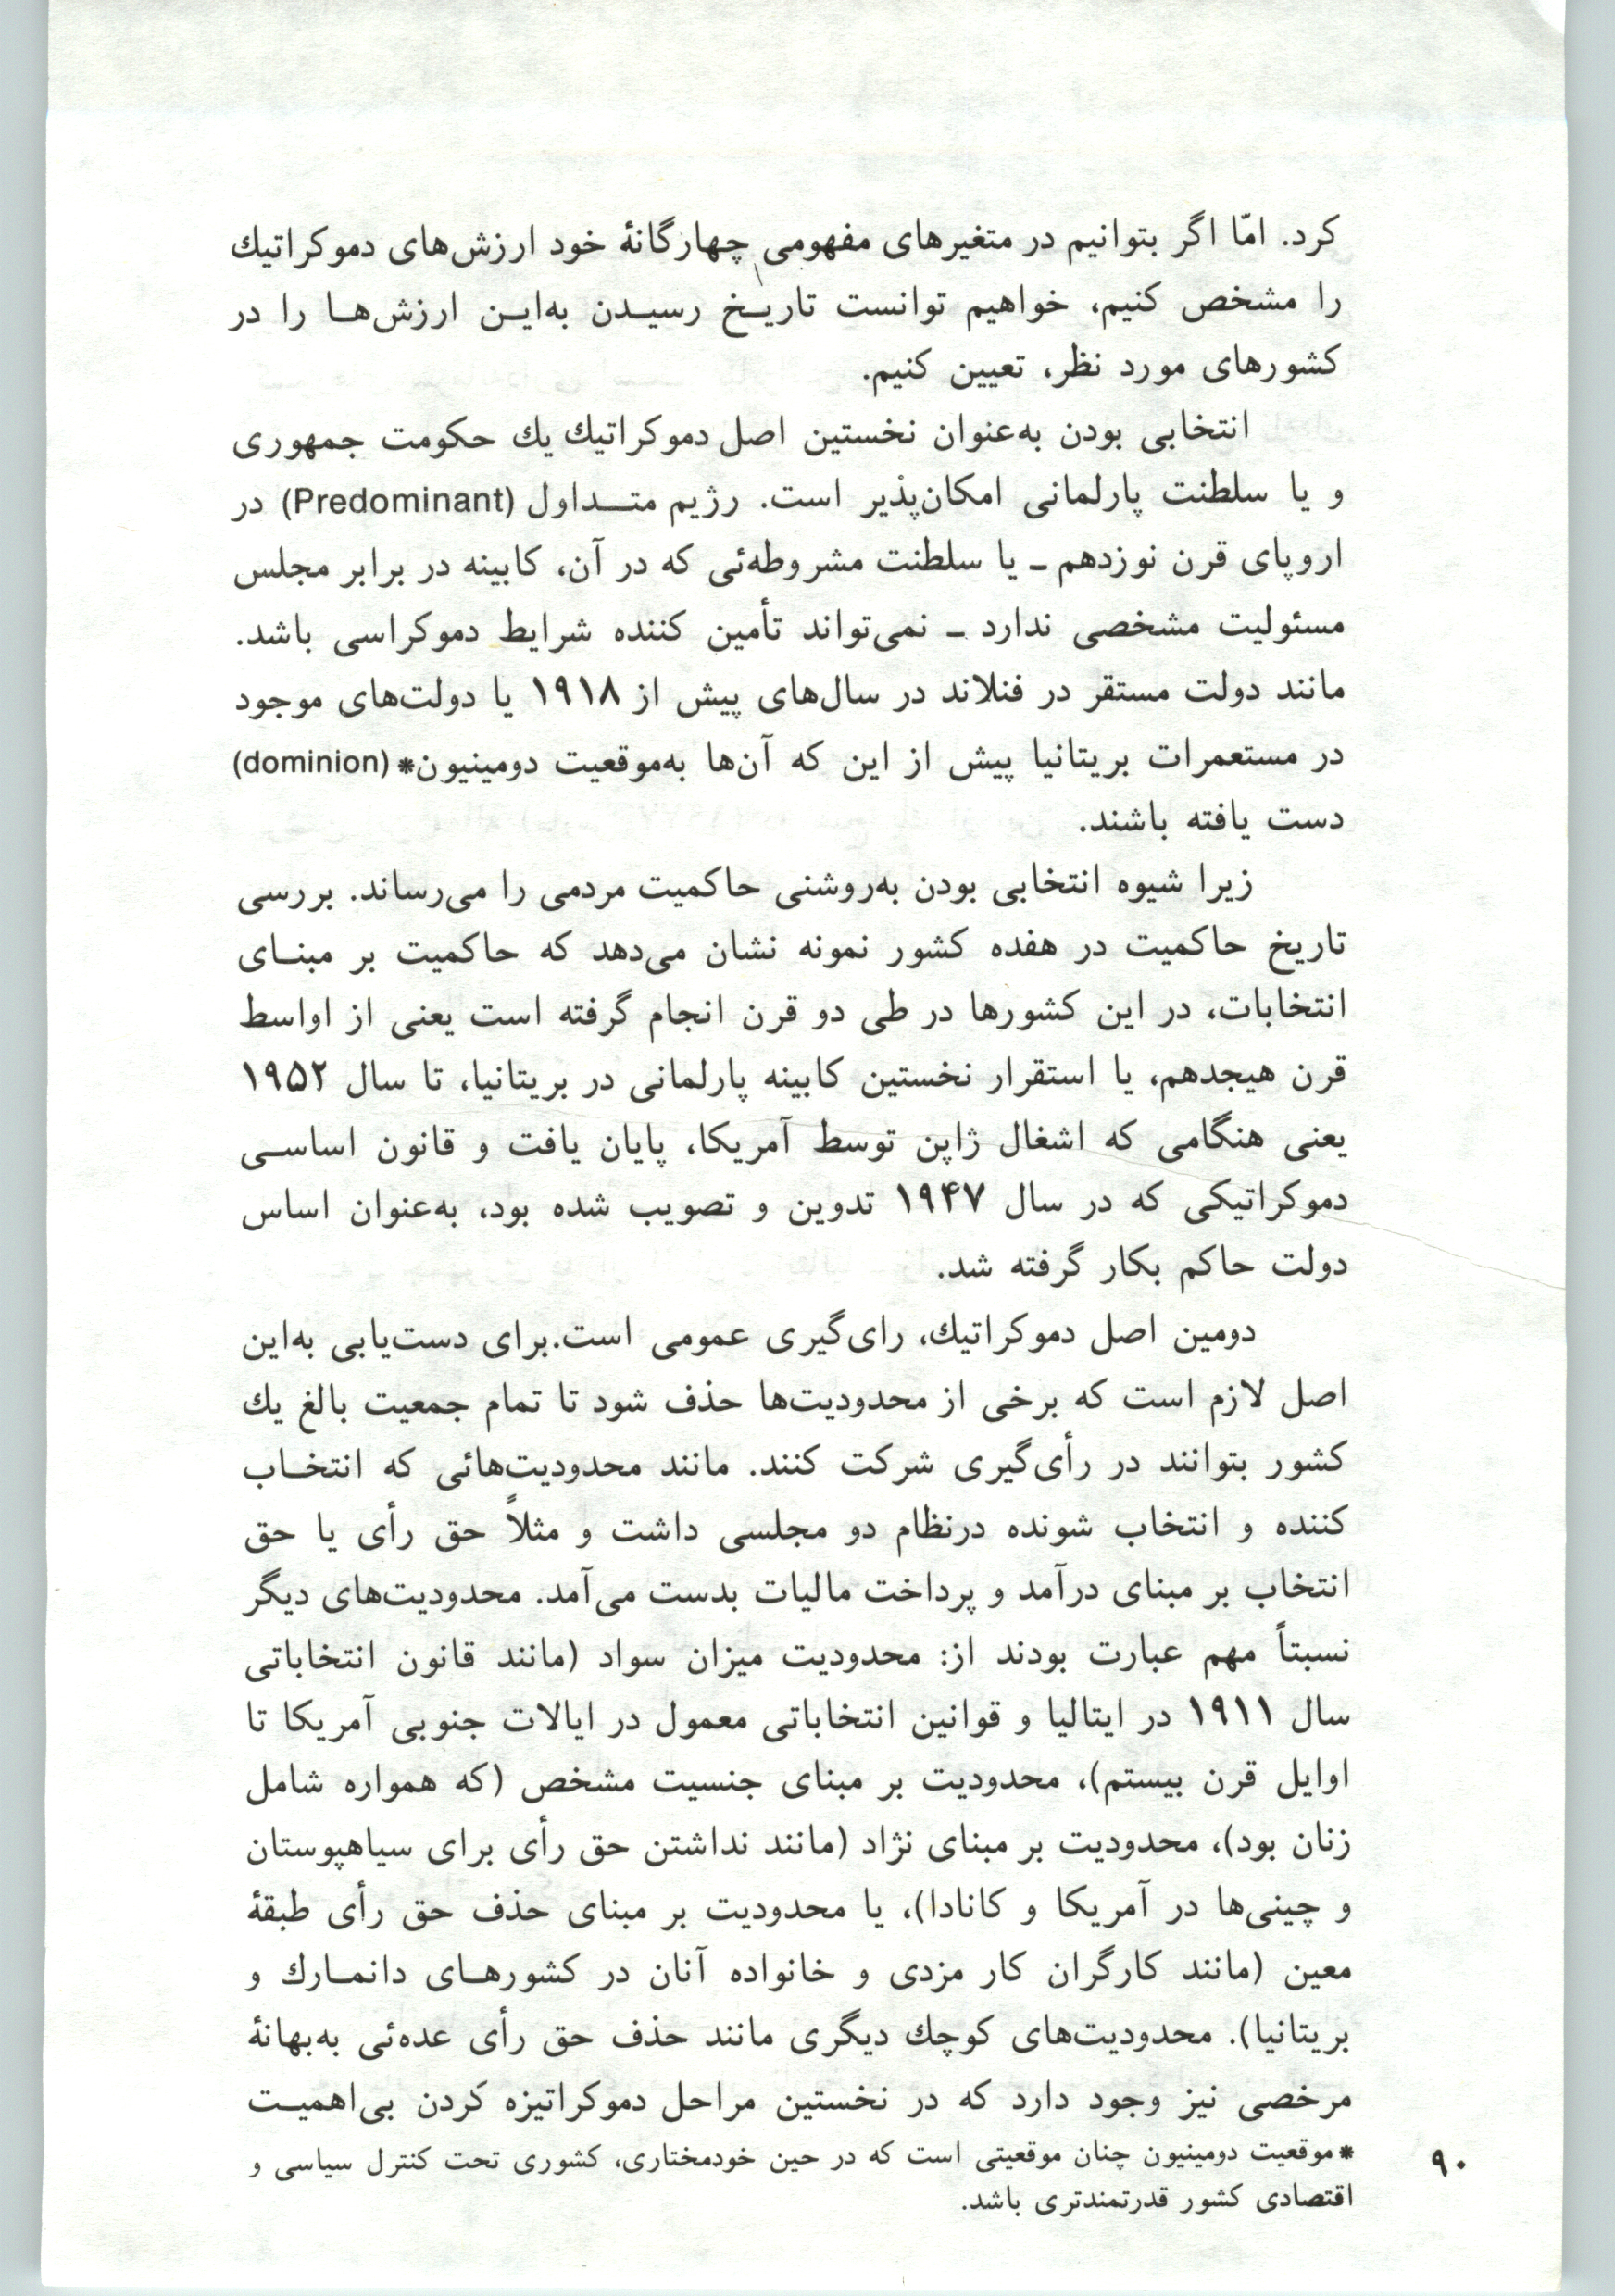 کرد. امّا اگر بتوانیم در متغیرهای مفهومی چهارگانۀ خود ارزش‌های دموکراتیك
را مشخص کنیم، خواهیم توانست تاریـخ رسیـدن به‌ایـن ارزش‌هـا را در
کشورهای مورد نظر، تعیین کنیم.
انتخابی بودن به‌عنوان نخستین اصل دموکراتیك یك حکومت جمهوری
و یا سلطنت پارلمانی امکان‌پذیر است. رژیم متـــداول (Predominant) در
اروپای قرن نوزدهم ـ یا سلطنت مشروطه‌ئی که در آن، کابینه در برابر مجلس
مسئولیت مشخصی ندارد ـ نمی‌تواند تأمین کننده شرایط دموکراسی باشد.
مانند دولت مستقر در فنلاند در سال‌های پیش از ۱۹۱۸ یا دولت‌های موجود
در مستعمرات بریتانیا پیش از این که آن‌ها به‌موقعیت دومینیون* (dominion)
دست یافته باشند.
زیرا شیوه انتخابی بودن به‌روشنی حاکمیت مردمی را می‌رساند. بررسی
تاریخ حاکمیت در هفده کشور نمونه نشان می‌دهد که حاکمیت بر مبنـای
انتخابات، در این کشورها در طی دو قرن انجام گرفته است یعنی از اواسط
قرن هیجدهم، یا استقرار نخستین کابینه پارلمانی در بریتانیا، تا سال ۱۹۵۲
یعنی هنگامی که اشغال ژاپن توسط آمریکا، پایان یافت و قانون اساسـی
دموکراتیکی که در سال ۱۹۴۷ تدوین و تصویب شده بود، به‌عنوان اساس
دولت حاکم بکار گرفته شد.
دومین اصل دموکراتیك، رای‌گیری عمومی است.برای دست‌یابی به‌این
اصل لازم است که برخی از محدودیت‌ها حذف شود تا تمام جمعیت بالغ یك
کشور بتوانند در رأی‌گیری شرکت کنند. مانند محدودیت‌هائی که انتخـاب
کننده و انتخاب شونده درنظام دو مجلسی داشت و مثلاً حق رأی یا حق
انتخاب بر مبنای درآمد و پرداخت مالیات بدست می‌آمد. محدودیت‌های دیگر
نسبتاً مهم عبارت بودند از: محدودیت میزان سواد (مانند قانون انتخاباتی
سال ۱۹۱۱ در ایتالیا و قوانین انتخاباتی معمول در ایالات جنوبی آمریکا تا
اوایل قرن بیستم)، محدودیت بر مبنای جنسیت مشخص (که همواره شامل
زنان بود)، محدودیت بر مبنای نژاد (مانند نداشتن حق رأی برای سیاهپوستان
و چینی‌ها در آمریکا و کانادا)، یا محدودیت بر مبنای حذف حق رأی طبقۀ
معین (مانند کارگران کار مزدی و خانواده آنان در کشورهـای دانمـارك و
بریتانیا). محدودیت‌های کوچك دیگری مانند حذف حق رأی عده‌ئی به‌بهانۀ
مرخصی نیز وجود دارد که در نخستین مراحل دموکراتیزه کردن بی‌اهمیـت
* موقعیت دومینیون چنان موقعیتی است که در حین خودمختاری، کشوری تحت کنترل سیاسی و
اقتصادی کشور قدرتمندتری باشد.
۹۰